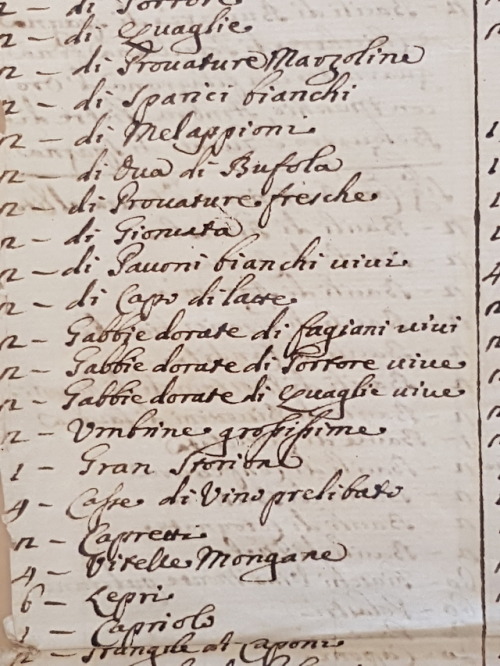 n - di Tortore
n - di Quaglie
n - di Provature Marzoline
n - di Sparici bianchi
n - di Melappioni
n - di Ova di Bufola
n - di Provature fresche
n - di Gioncata
n - di Pavoni bianchi vivi
n - di Capo di latte
n - Gabbie dorate di fagiani vivi
n - Gabbie dorate di Tortore vive
n - Gabbie dorate di Quaglie vive
n - Umbrine grossissime
1 - Gran Storione
4 - Casse di Vino prelibato
n - Capretti
4 - Vitelle Mongane
6 - Lepri
1 - Capriolo
n - Stangue di Caponi